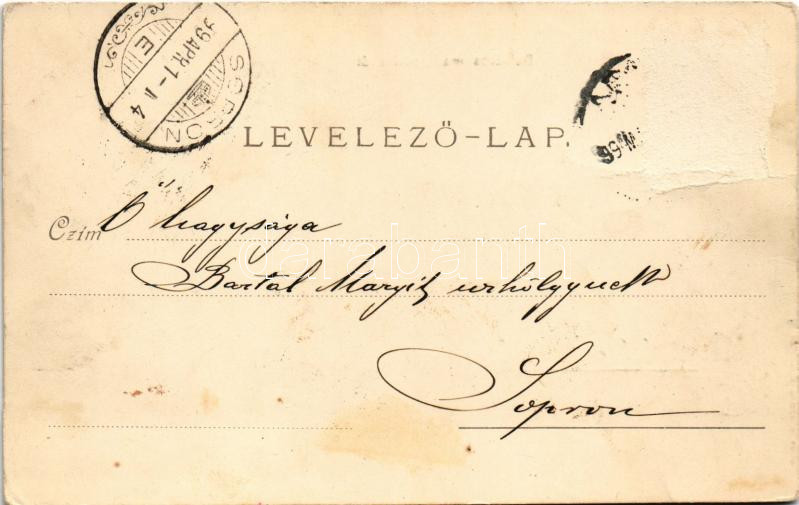 SOPRON
99 APR. 1
E
LEVELEZŐ-LAP.
Czím Ő Nagysága
Bartal Margit urhölgynek
Sopron
darabanth